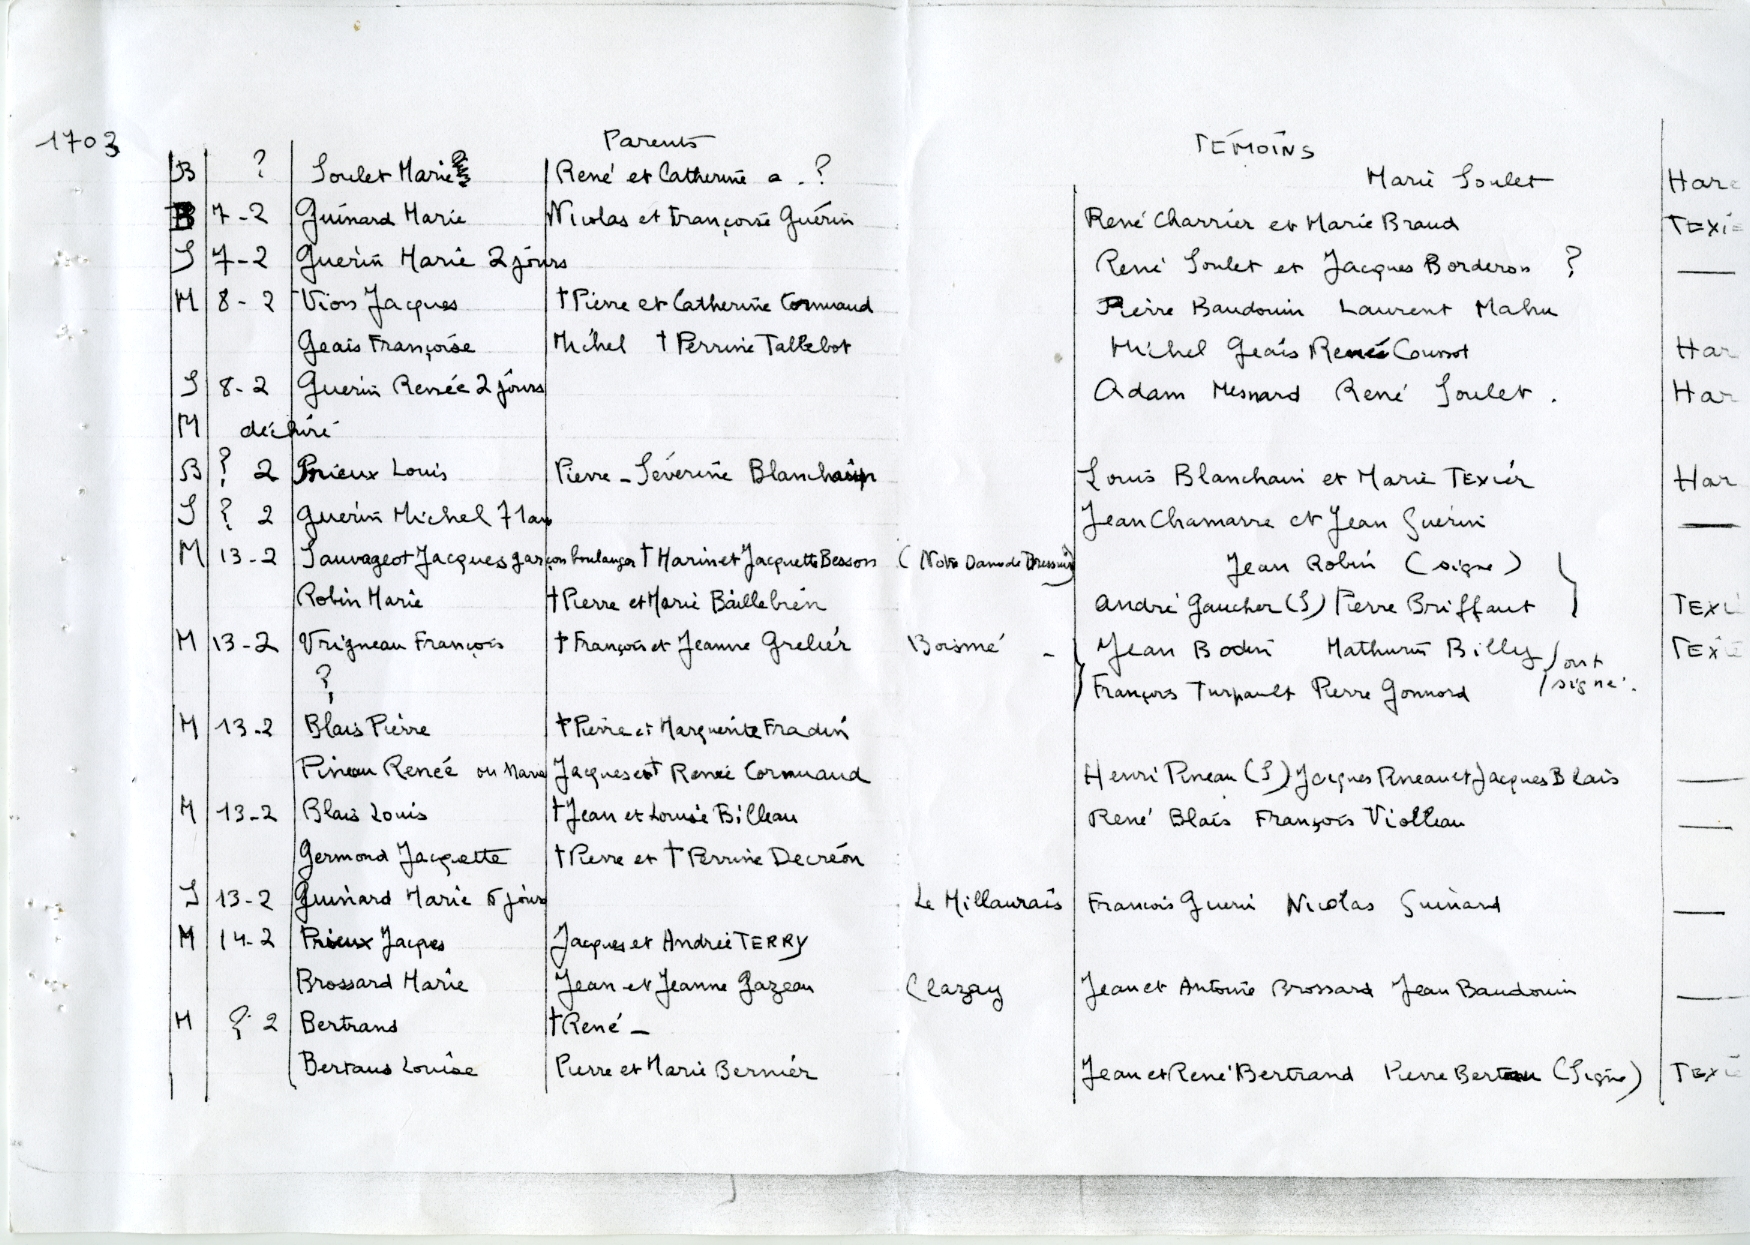 1703 Parents TÉMOINS
B ? Soulet Marie René et Catherine a . ? Marie Soulet Har
B 7-2 Guinard Marie Nicolas et Françoise Guérin René Charrier et Marie Braud TEXI
S 7-2 Guerin Marie 2 jours René Soulet et Jacques Borderon ? —
M 8-2 Vion Jacques † Pierre et Catherine Cornuaud Pierre Baudouin Laurent Mahu
Geais Françoise Michel † Perrine Tallebot Michel Geais René Coussot Har
S 8-2 Guerin Renée 2 jours Adam Mesnard René Soulet . Har
M déchiré
B ? 2 Prieux Louis Pierre - Séverine Blanchain Louis Blanchain et Marie TEXIER Har
S ? 2 Guerin Michel 71 ans Jean Chamarre et Jean Guérin —
M 13-2 Sauvageot Jacques garçon boulanger † Marin et Jacquette Besson (Notre Dame de Bressuire) Jean Robin (signe)
Robin Marie † Pierre et Marie Baillebren André Gaucher (S) Pierre Briffaut TEXI
M 13-2 Vrigneau François † François et Jeanne Grelier Boismé - Jean Bodin Mathurin Billy ont
? François Turpault Pierre Gonnord signé.
M 13-2 Blais Pierre † Pierre et Marguerite Fradin
Pineau Renée ou Marie Jacques et † Renée Cornuaud Henri Pineau (S) Jacques Pineau et Jacques Blais —
M 13-2 Blais Louis † Jean et Louise Billeau René Blais François Violleau —
Germond Jacquette † Pierre et † Perrine Decréon
S 13-2 Guinard Marie 6 jours Le Millaurais Francois Guerin Nicolas Guinard —
M 14-2 Prieux Jacques Jacques et Andrée TERRY
Brossard Marie Jean et Jeanne Gazeau Clazay Jean et Antoine Brossard Jean Baudouin —
M ? 2 Bertrand † René -
Bertaus Louise Pierre et Marie Bernier Jean et René Bertrand Pierre Berteau (Signe) TEXI